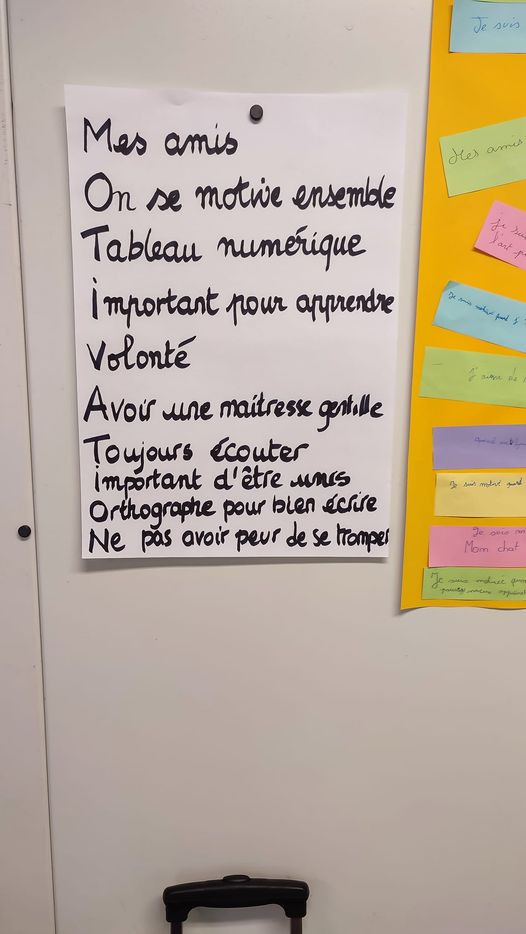 Mes amis
On se motive ensemble
Tableau numérique
important pour apprendre
Volonté
Avoir une maitresse gentille
Toujours écouter
important d'être unis
Orthographe pour bien écrire
Ne pas avoir peur de se tromper
Je suis
Mes amis
je su
l'art p
Je suis motivé quand j'
J'aime de
Je suis motivé quand
Je suis m
Mom chat
Je suis motivé